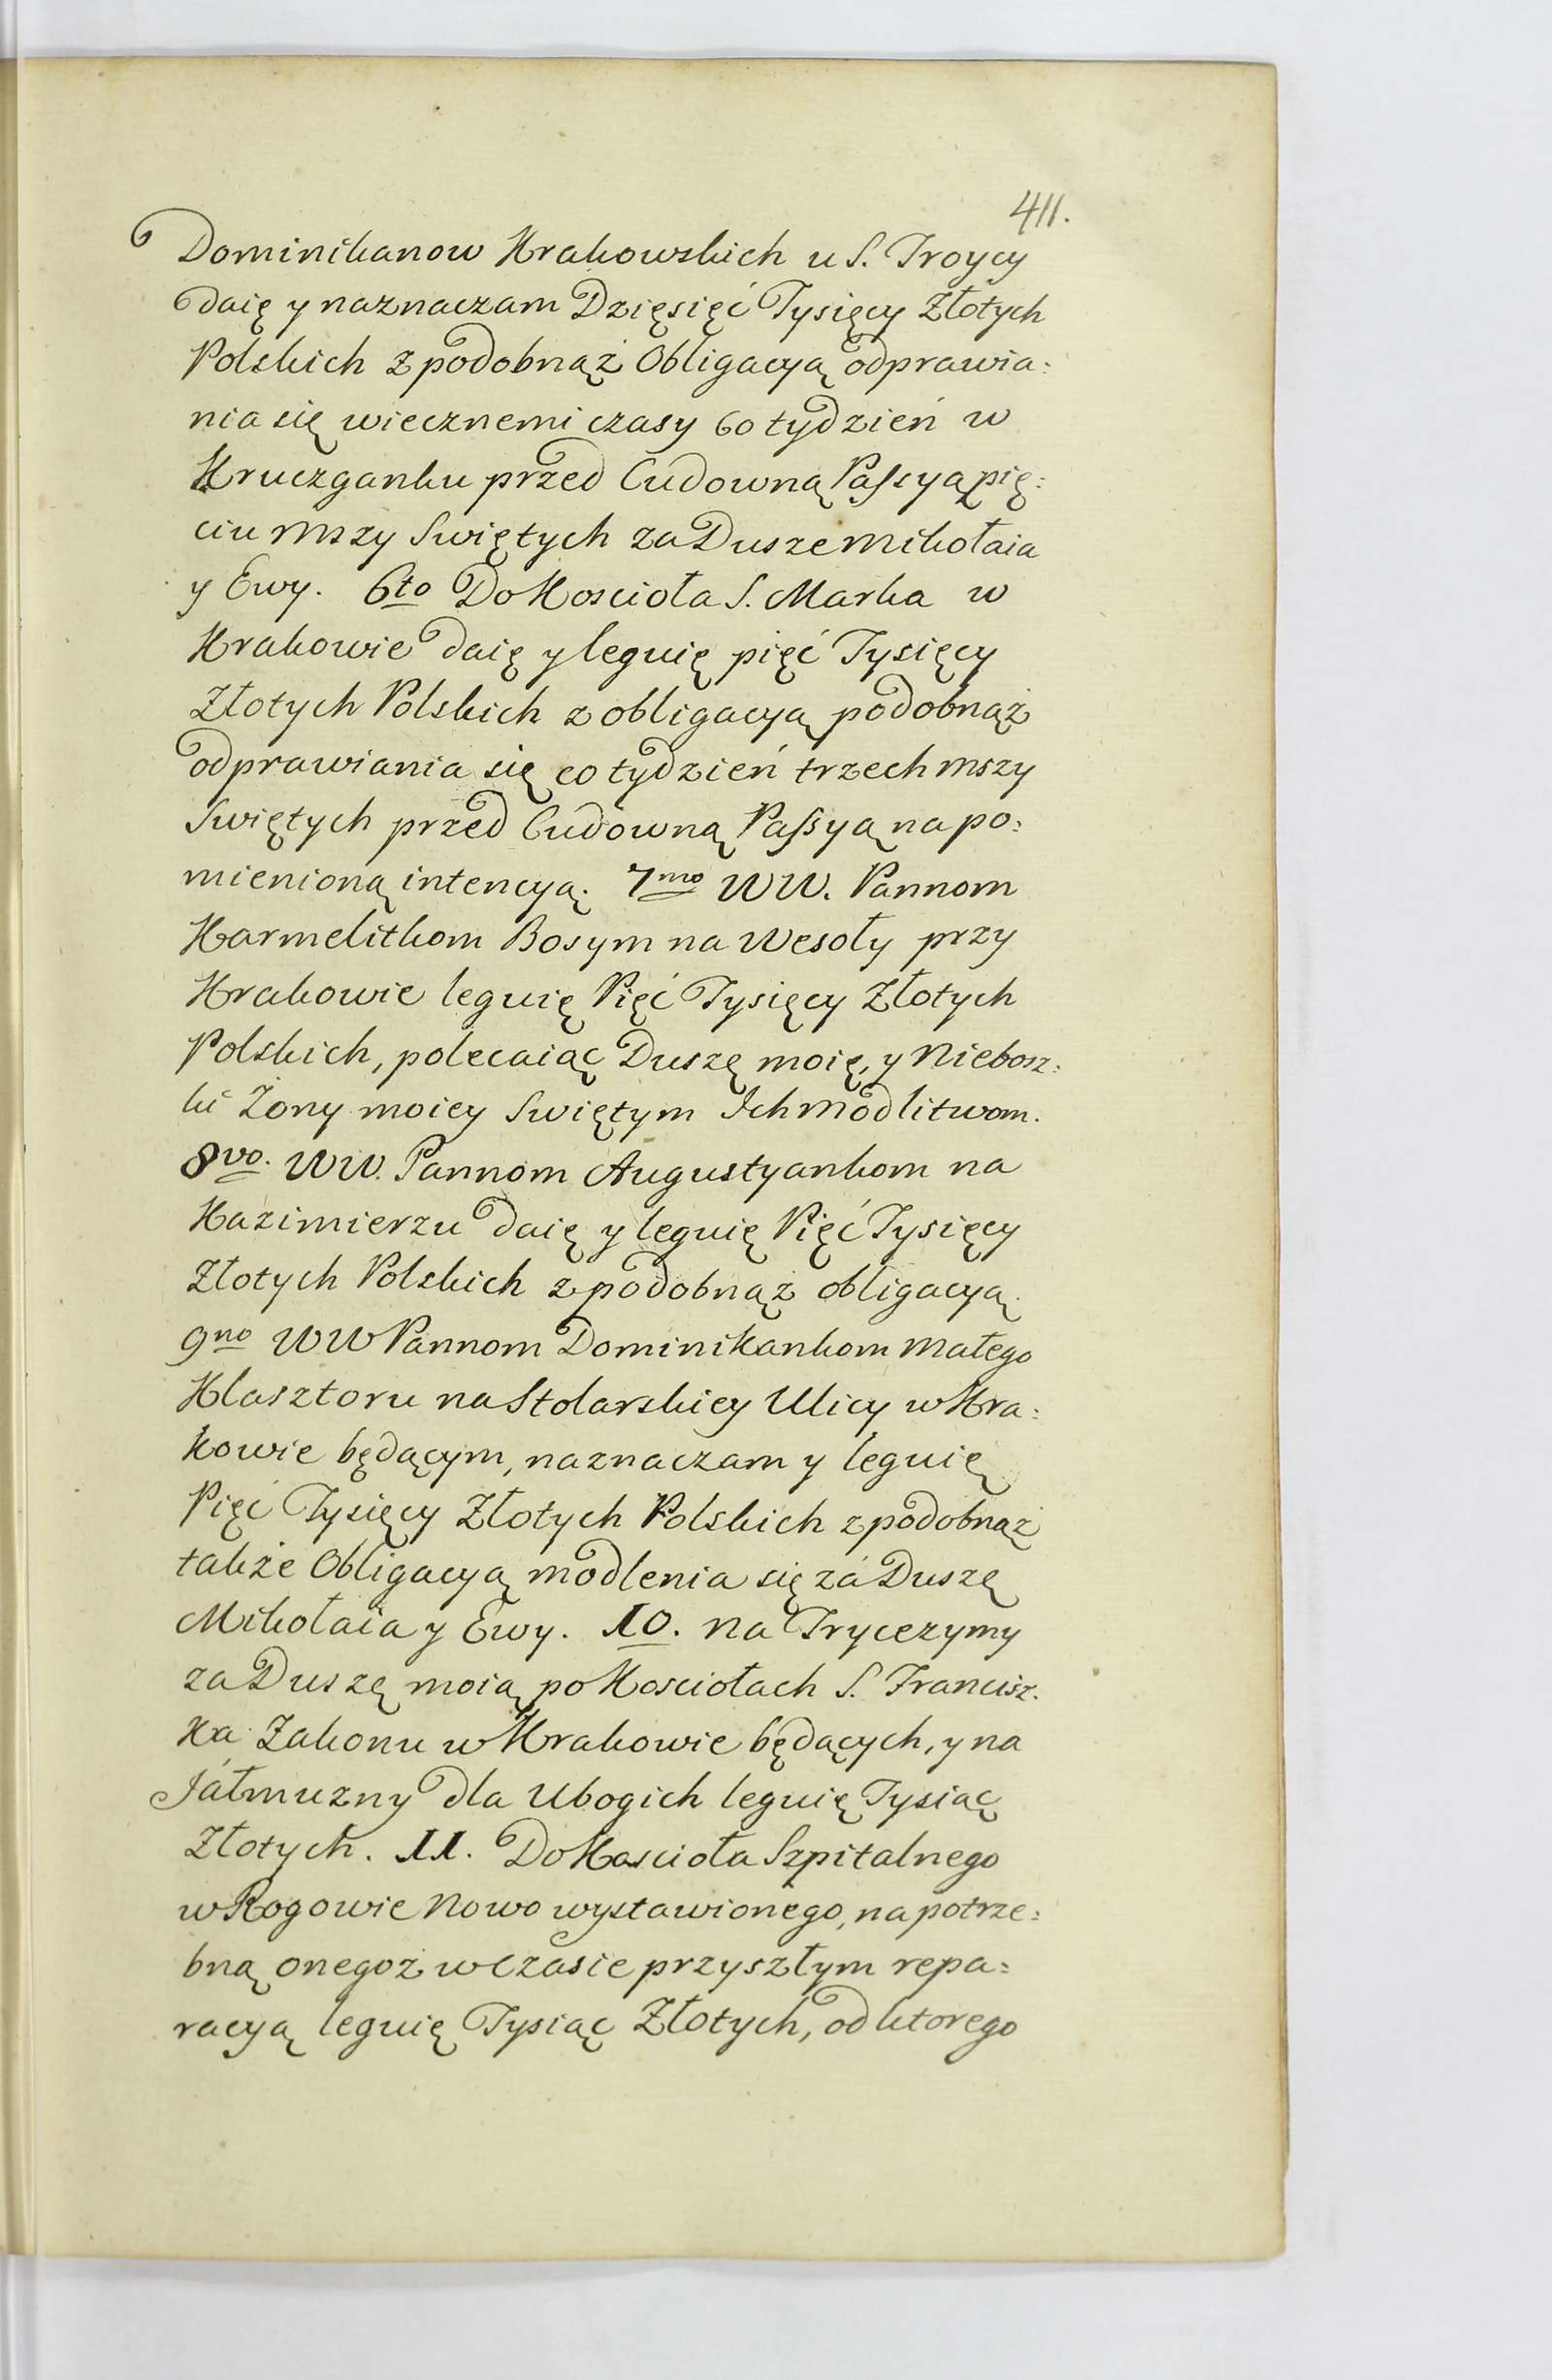 411.
Dominikanow Krakowskich u S. Troycy
daię y naznaczam Dzięsięć Tysięcy Złotych
Polskich z podobnąż Obligacyą odprawia:
nia się wiecznemi czasy co tydzień w
Kruczganku przed Cudowną Passyą pię:
ciu Mszy Swiętych za Dusze Mikołaia
y Ewy. 6to Do Koscioła S. Marka w
Krakowie daię y leguię pięć Tysięcy
Złotych Polskich z obligacyą podobnąż
odprawiania się co tydzień trzech mszy
Swiętych przed Cudowną Passyą na po:
mienioną intencyą. 7mo WW. Pannom
Karmelitkom Bosym na Wesoły przy
Krakowie leguię Pięć Tysięcy Złotych
Polskich, polecaiąc Duszę moię, y Niebosz:
ki Żony moiey Swiętym Ich Modlitwom.
8vo. WW. Pannom Augustyankom na
Kazimierzu daię y leguię Pięć Tysięcy
Złotych Polskich z podobnąż obligacyą.
9no WW Pannom Dominikankom Małego
Klasztoru na Stolarskiey Ulicy w Kra:
kowie będącym, naznaczam y leguię
Pięć Tysięcy Złotych Polskich z podobnąż
także Obligacyą modlenia się zá Duszę
Mikołaia y Ewy. 10. na Trycezymy
za Duszę moią po Kosciołach S. Francisz:
ka Zakonu w Krakowie będących, y na
Jáłmuzny dla Ubogich leguię Tysiąc
Złotych. 11. Do Koscioła Szpitalnego
w Rogowie Nowo wystawionego, na potrze:
bną onegoż w czasie przyszłym repa:
racyą leguię Tysiąc Złotych, od ktorego